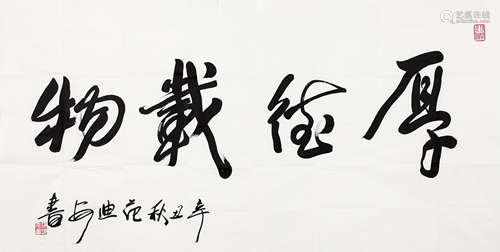 厚德載物
辛丑秋范迪安書